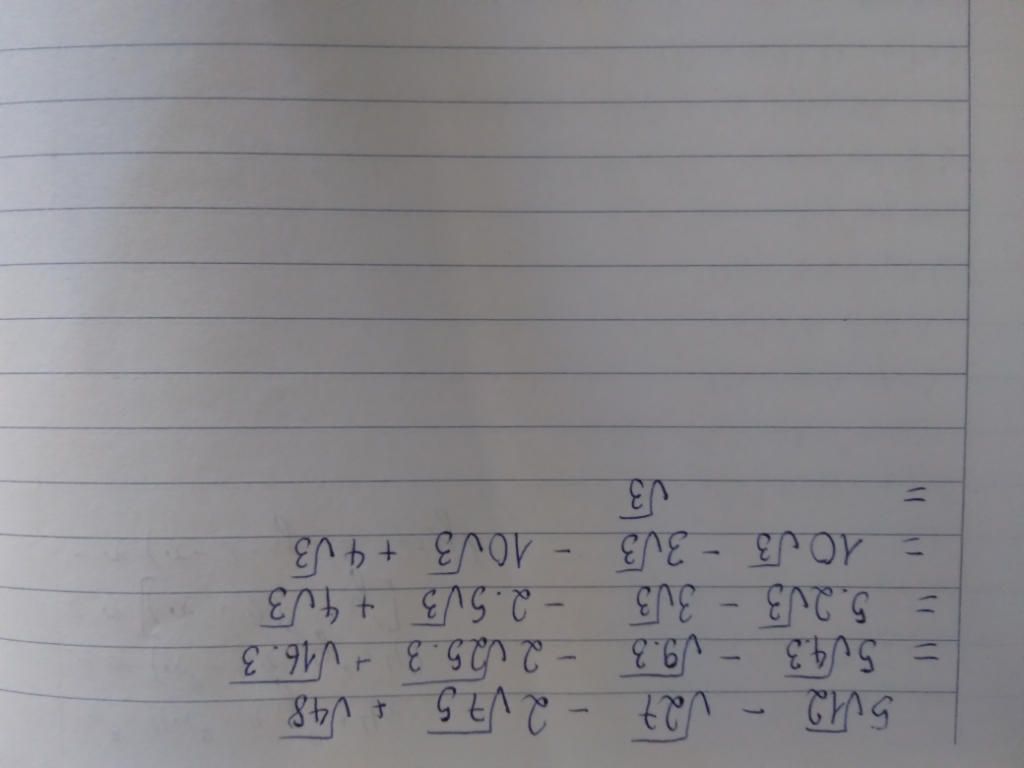 5√12 - √27 - 2√75 + √48
= 5√4.3 - √9.3 - 2√25.3 + √16.3
= 5.2√3 - 3√3 - 2.5√3 + 4√3
= 10√3 - 3√3 - 10√3 + 4√3
= √3